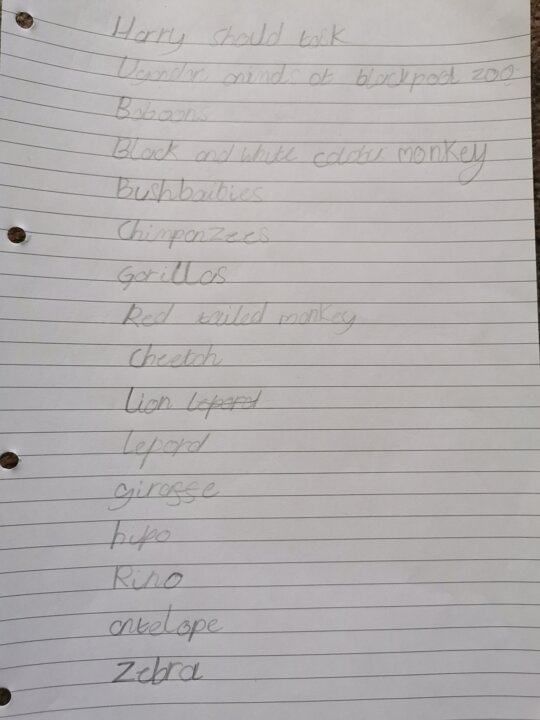 Harry should took
Ugandan animals at blackpool zoo
Baboons
Black and white colobus monkey
Bushbaibies
Chimpanzees
Gorillas
Red tailed monkey
Cheetah
Lion lepord
lepord
giraffe
hipo
Rino
antelope
Zebra